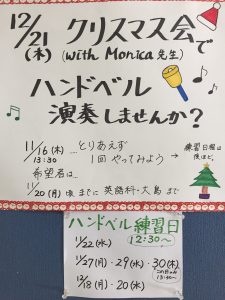 12/21
(木)
クリスマス会で
(with Monica 先生)
ハンドベル
演奏しませんか?
11/16(木) …とりあえず
13:30
1回 やってみよう →
練習日程は
後ほど。
希望者は
11/20(月)頃までに 英語科・大島まで
ハンドベル 練習日
12:30〜
11/22(水)
11/27(月)・29(水)・30(木)
12/18(月)・20(水)